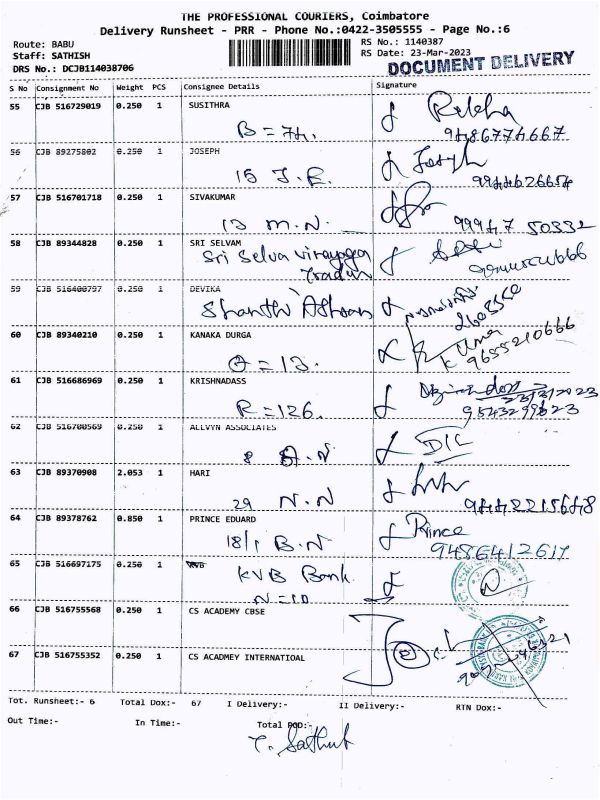 THE PROFESSIONAL COURIERS, Coimbatore
Delivery Runsheet - PRR - Phone No.:0422-3505555 - Page No.:6
Route: BABU
RS No.: 1140387
Staff: SATHISH
RS Date: 23-Mar-2023
DRS No.: DCJB114038706
DOCUMENT DELIVERY
S No Consignment No Weight PCS Consignee Details Signature
55 CJB 516729019 0.250 1 SUSITHRA
B = 74. Rekha
9486774667
56 CJB 89275802 0.250 1 JOSEPH
15 J.R. Joseph
57 CJB 516701718 0.250 1 SIVAKUMAR
13 M.N. 99947 50332
58 CJB 89344828 0.250 1 SRI SELVAM
Sri Selva Vinayaga
Tradun
59 CJB 516400797 0.250 1 DEVIKA
Shanthi
60 CJB 89340210 0.250 1 KANAKA DURGA
= 13. K Uma
9655210666
61 CJB 516686969 0.250 1 KRISHNADASS
R = 126. 23/3/2023
62 CJB 516700569 0.250 1 ALLVYN ASSOCIATES
8 A.N
63 CJB 89370908 2.053 1 HARI
29 N.N 9442215648
64 CJB 89378762 0.850 1 PRINCE EDUARD
18/1 B.N Prince
9486412617
65 CJB 516697175 0.250 1 KVB
KVB Bank
N = 10
66 CJB 516755568 0.250 1 CS ACADEMY CBSE
67 CJB 516755352 0.250 1 CS ACADMEY INTERNATIOAL
Tot. Runsheet:- 6 Total Dox:- 67 I Delivery:- II Delivery:- RTN Dox:-
Out Time:- In Time:- Total POD:-
T. Sathish